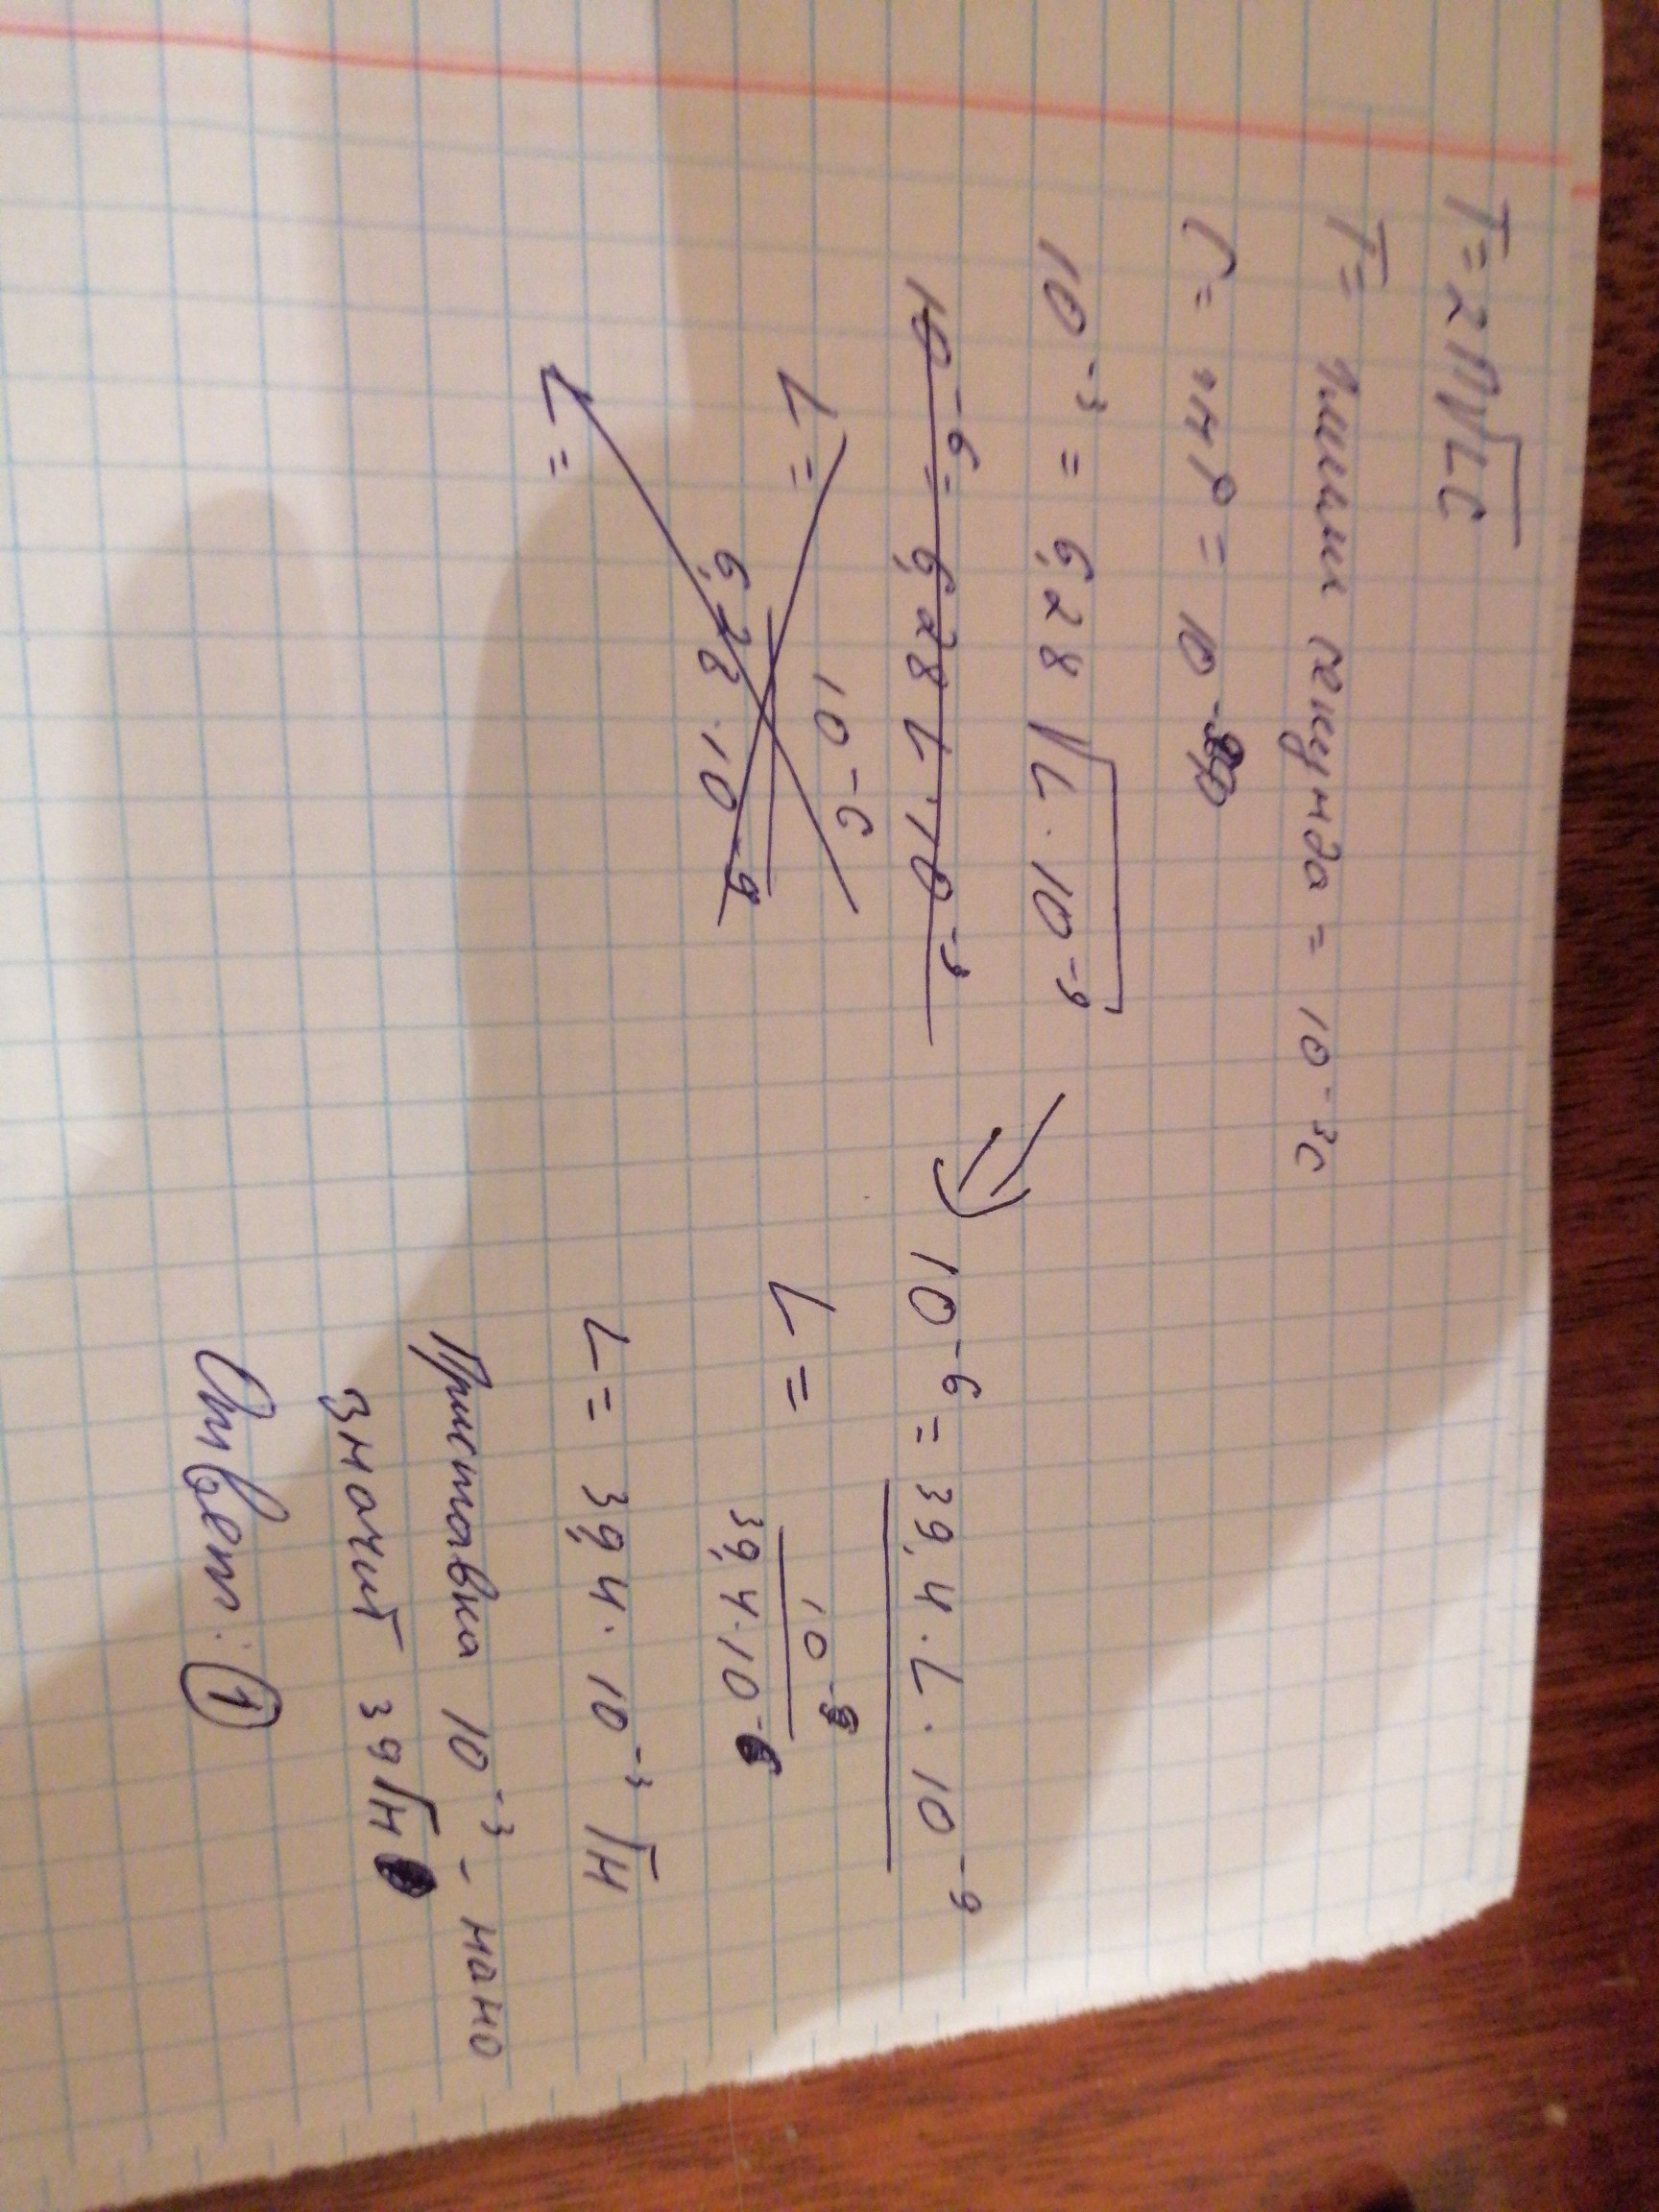 T = 2П√LC
T = милли секунда = 10⁻³ с
C = нФ = 10⁻⁹
10⁻³ = 6,28 √L · 10⁻⁹
10⁻⁶ = 6,28 L · 10⁻⁹
L = 10⁻⁶
6,28 · 10⁻⁹
L =
10⁻⁶ = 39,4 · L · 10⁻⁹
L = 10⁻⁹
39,4 · 10⁻⁶
L = 39,4 · 10⁻³ ГН
Приставка 10⁻³ - нано
значит 39 ГН
Ответ: 1